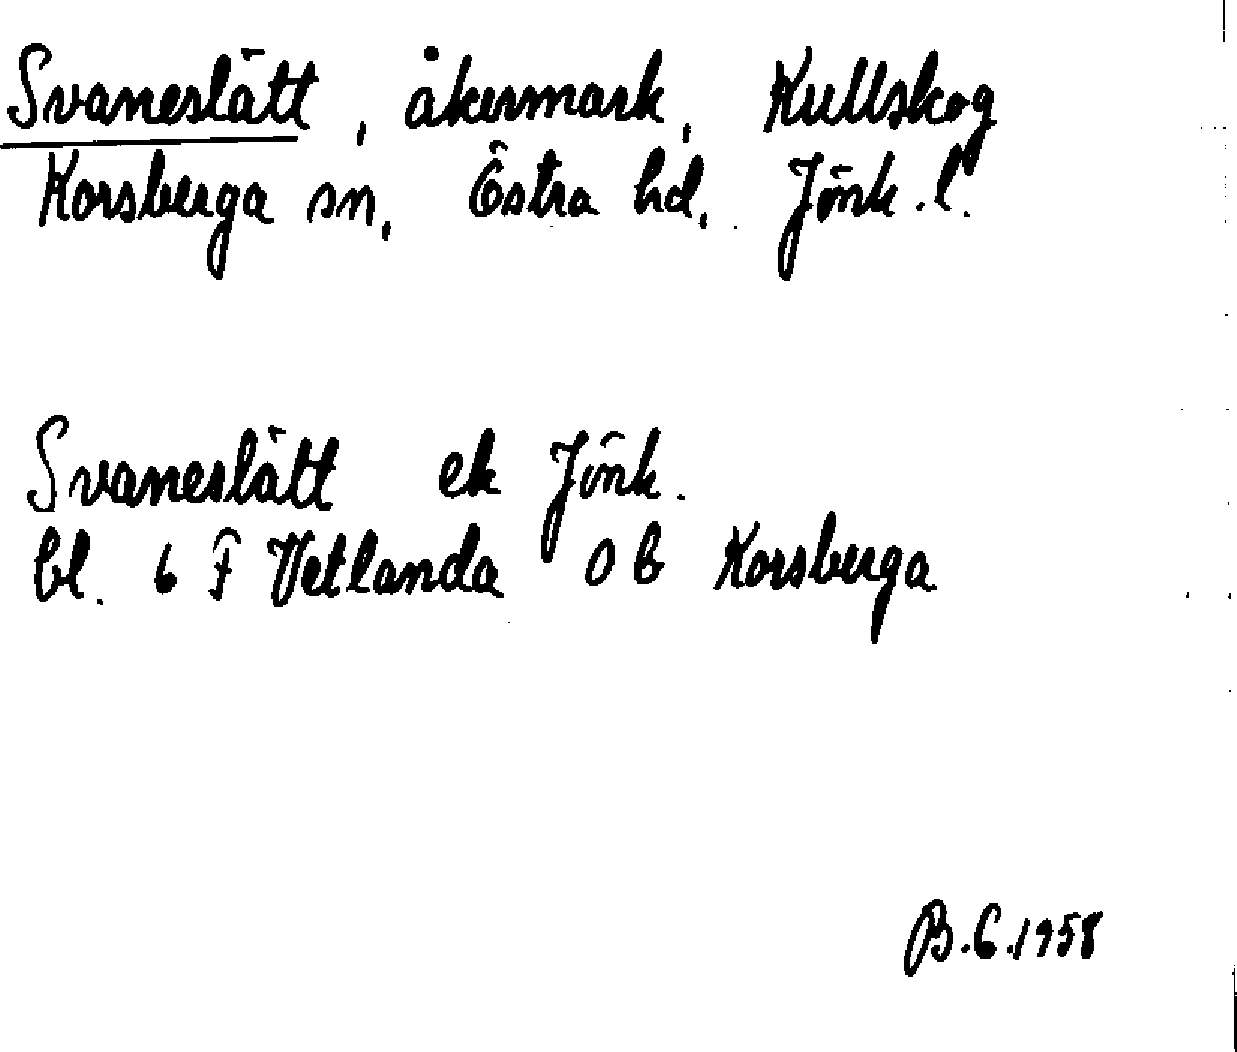 Svaneslätt, åkermark, Kullskog
Korsberga sn, Östra hd, Jönk.l.
Svaneslätt ek Jönk.
bl. 6 F Vetlanda 0 b Korsberga
B.G.1958